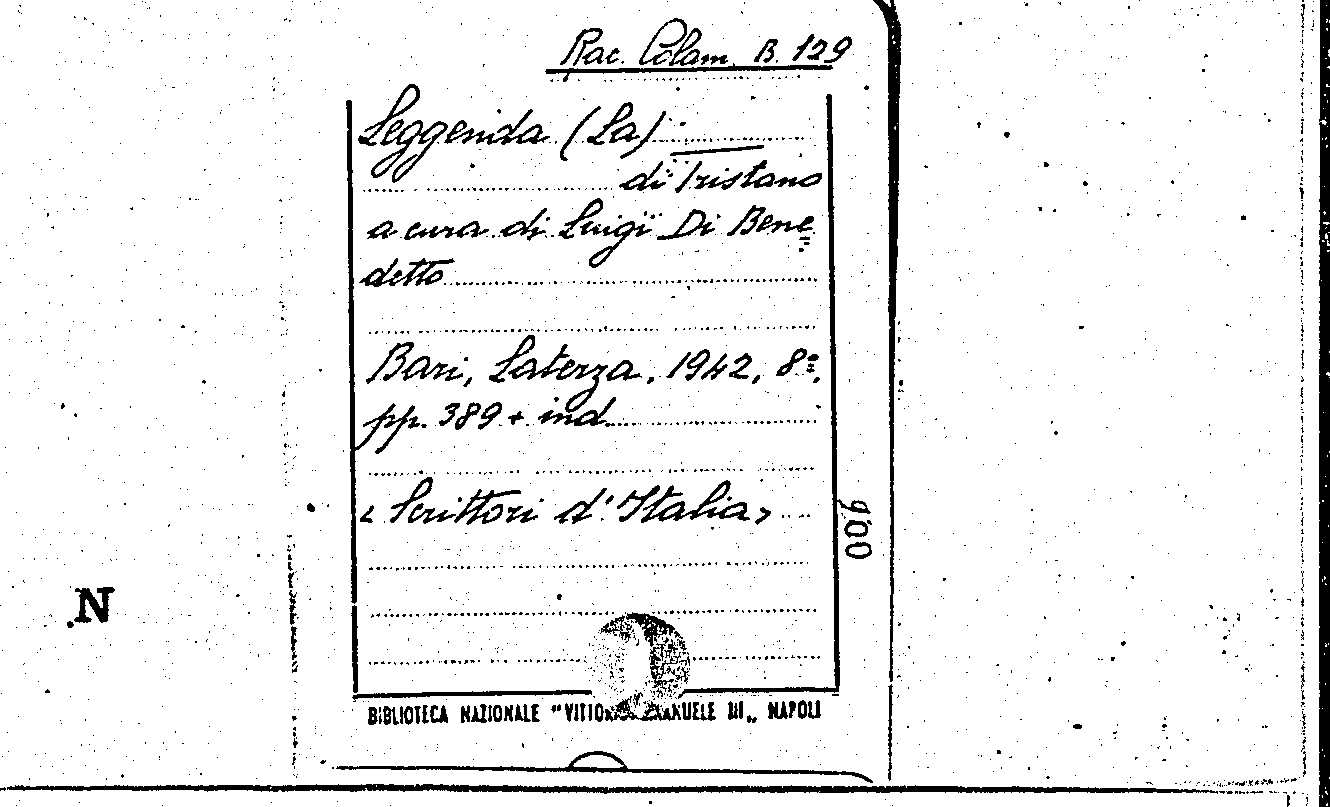 Rac. Colam. B. 129
Leggenda (La)
di Tristano
a cura di Luigi Di Bene
detto
Bari, Laterza, 1942, 8º,
pp. 389 + ind.
< Scrittori d'Italia >
900
N
BIBLIOTECA NAZIONALE "VITTORIO EMANUELE III„ NAPOLI